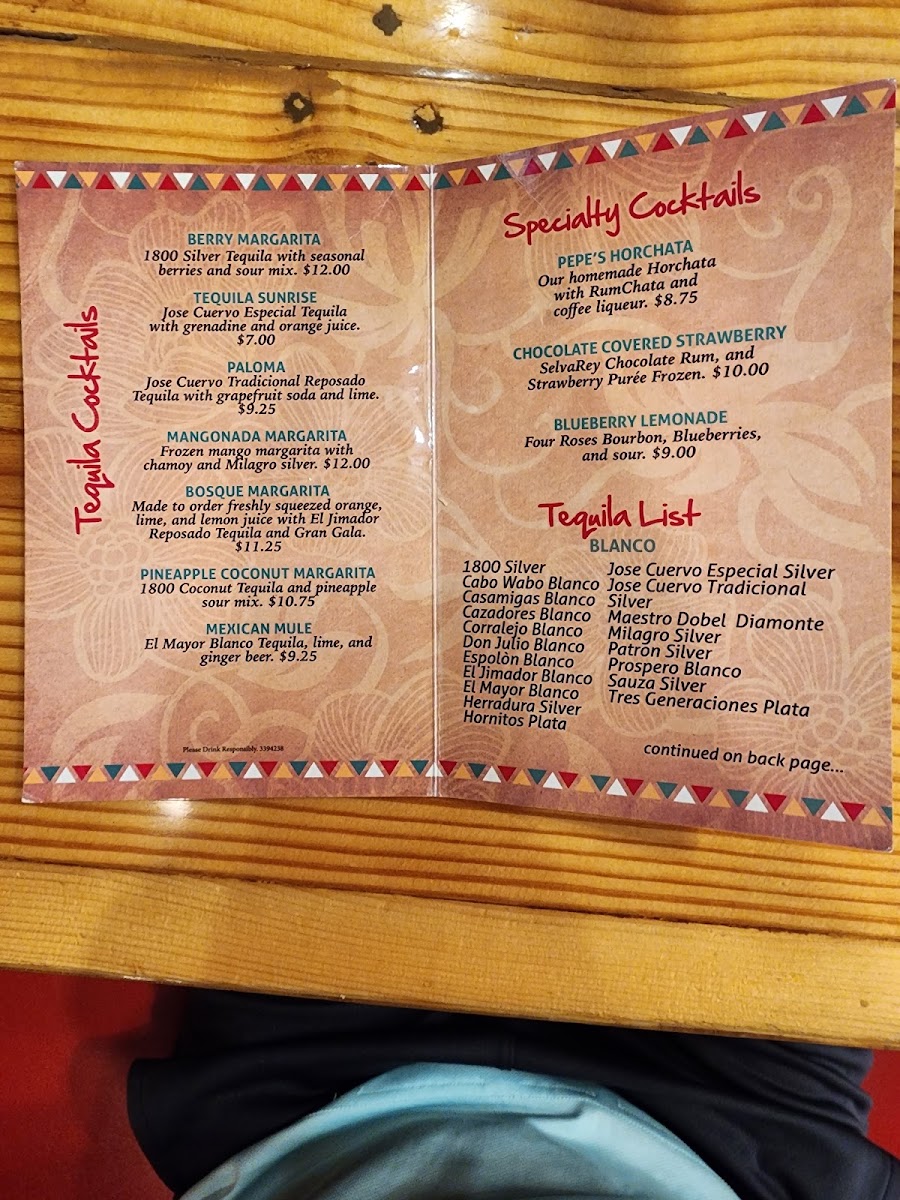 Tequila Cocktails
BERRY MARGARITA
1800 Silver Tequila with seasonal
berries and sour mix. $12.00
TEQUILA SUNRISE
Jose Cuervo Especial Tequila
with grenadine and orange juice.
$7.00
PALOMA
Jose Cuervo Tradicional Reposado
Tequila with grapefruit soda and lime.
$9.25
MANGONADA MARGARITA
Frozen mango margarita with
chamoy and Milagro silver. $12.00
BOSQUE MARGARITA
Made to order freshly squeezed orange,
lime, and lemon juice with El Jimador
Reposado Tequila and Gran Gala.
$11.25
PINEAPPLE COCONUT MARGARITA
1800 Coconut Tequila and pineapple
sour mix. $10.75
MEXICAN MULE
El Mayor Blanco Tequila, lime, and
ginger beer. $9.25
Please Drink Responsibly. 3394238
Specialty Cocktails
PEPE'S HORCHATA
Our homemade Horchata
with RumChata and
coffee liqueur. $8.75
CHOCOLATE COVERED STRAWBERRY
SelvaRey Chocolate Rum, and
Strawberry Purée Frozen. $10.00
BLUEBERRY LEMONADE
Four Roses Bourbon, Blueberries,
and sour. $9.00
Tequila List
BLANCO
1800 Silver
Cabo Wabo Blanco
Casamigas Blanco
Cazadores Blanco
Corralejo Blanco
Don Julio Blanco
Espolòn Blanco
El Jimador Blanco
El Mayor Blanco
Herradura Silver
Hornitos Plata
Jose Cuervo Especial Silver
Jose Cuervo Tradicional
Silver
Maestro Dobel Diamonte
Milagro Silver
Patrón Silver
Prospero Blanco
Sauza Silver
Tres Generaciones Plata
continued on back page...